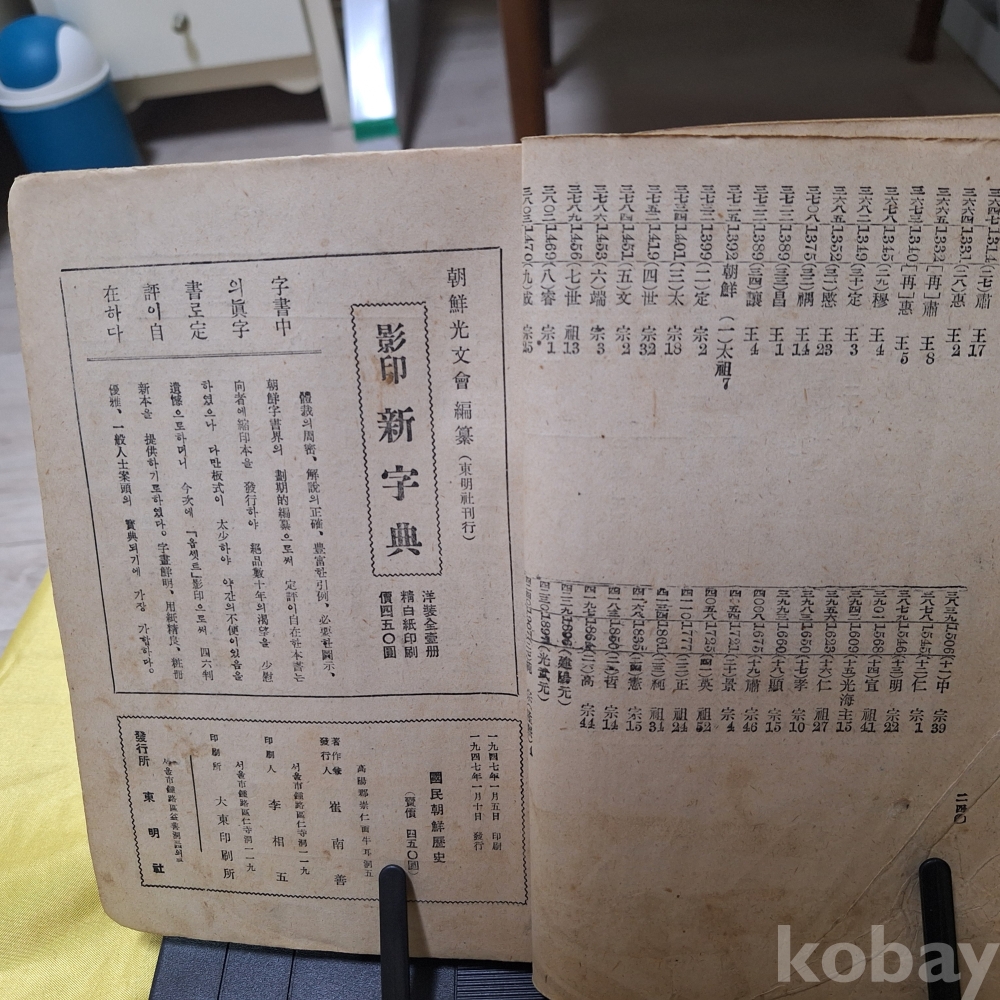 三六四七 1314 (二七)肅 王 17
三六六四 1331 (二八)惠 王 2
三六六五 1332 [再]肅 王 8
三六七三 1340 [再]惠 王 5
三六七八 1345 (二九)穆 王 4
三六八二 1349 (三十)定 王 3
三六八五 1352 (三一)愍 王 23
三七〇八 1375 (三二)禑 王 14
三七二二 1389 (三三)昌 王 1
三七二二 1389 (三四)讓 王 4
三七二五 1392 朝鮮 (一)太祖 7
三七三二 1399 (二)定 宗 2
三七三四 1401 (三)太 宗 18
三七五二 1419 (四)世 宗 32
三七八四 1451 (五)文 宗 2
三七八六 1453 (六)端 宗 3
三七八九 1456 (七)世 祖 13
三八〇二 1469 (八)睿 宗 1
三八〇三 1470 (九)成 宗 25
三八三九 1506 (十一)中 宗 39
三八七八 1545 (十二)仁 宗 1
三八七九 1546 (十三)明 宗 22
三九〇一 1568 (十四)宣 祖 41
三九四二 1609 (十五)光海主 15
三九五六 1623 (十六)仁 祖 27
三九八三 1650 (十七)孝 宗 10
三九九三 1660 (十八)顯 宗 15
四〇〇八 1675 (十九)肅 宗 46
四〇五四 1721 (二十)景 宗 4
四〇五八 1725 (二一)英 祖 52
四一一〇 1777 (二二)正 祖 24
四一三四 1801 (二三)純 祖 34
四一六八 1835 (二四)憲 宗 15
四一八三 1850 (二五)哲 宗 14
四一九七 1864 (二六)高 宗 44
四二二九 1896 (建陽元)
四二三〇 1897 (光武元)
二四〇
朝鮮光文會 編纂 (東明社刊行)
影印 新字典
洋裝全壹册
精白紙印刷
價四五〇圓
字書中
의眞字
書로定
評이自
在하다
體裁의周密、解說의正確、豊富한引例、必要한圖示、
朝鮮字書界의 劃期的編纂으로써 定評이自在한本書는
向者에縮印本을 發行하야 絕品數十年의渴望을 少慰
하였으나 다만板式이 太少하야 約간의不便이있음을
遺憾으로하더니 今次에 『옵셋트』影印으로써 四六判
新本을 提供하기로하였다。字畫鮮明、用紙精良、粧冊
優雅、一般人士案頭의 寶典되기에 가장 가합하다。
一九四七年一月五日 印刷
一九四七年一月十日 發行
國民朝鮮歷史
(賣價 四五〇圓)
高陽郡崇仁面牛耳洞五
著作兼發行人 崔南善
서울市鍾路區仁寺洞一一九
印刷人 李相五
서울市鍾路區仁寺洞一一九
印刷所 大東印刷所
發行所 東明社
kobay